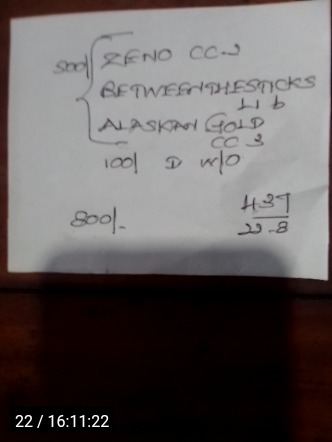 500/ ZENO CC-3
BETWEENTHESTICKS
L1 6
ALASKAN GOLD
CC 3
100/ D W/O
800/-
437
22-8
22 / 16:11:22